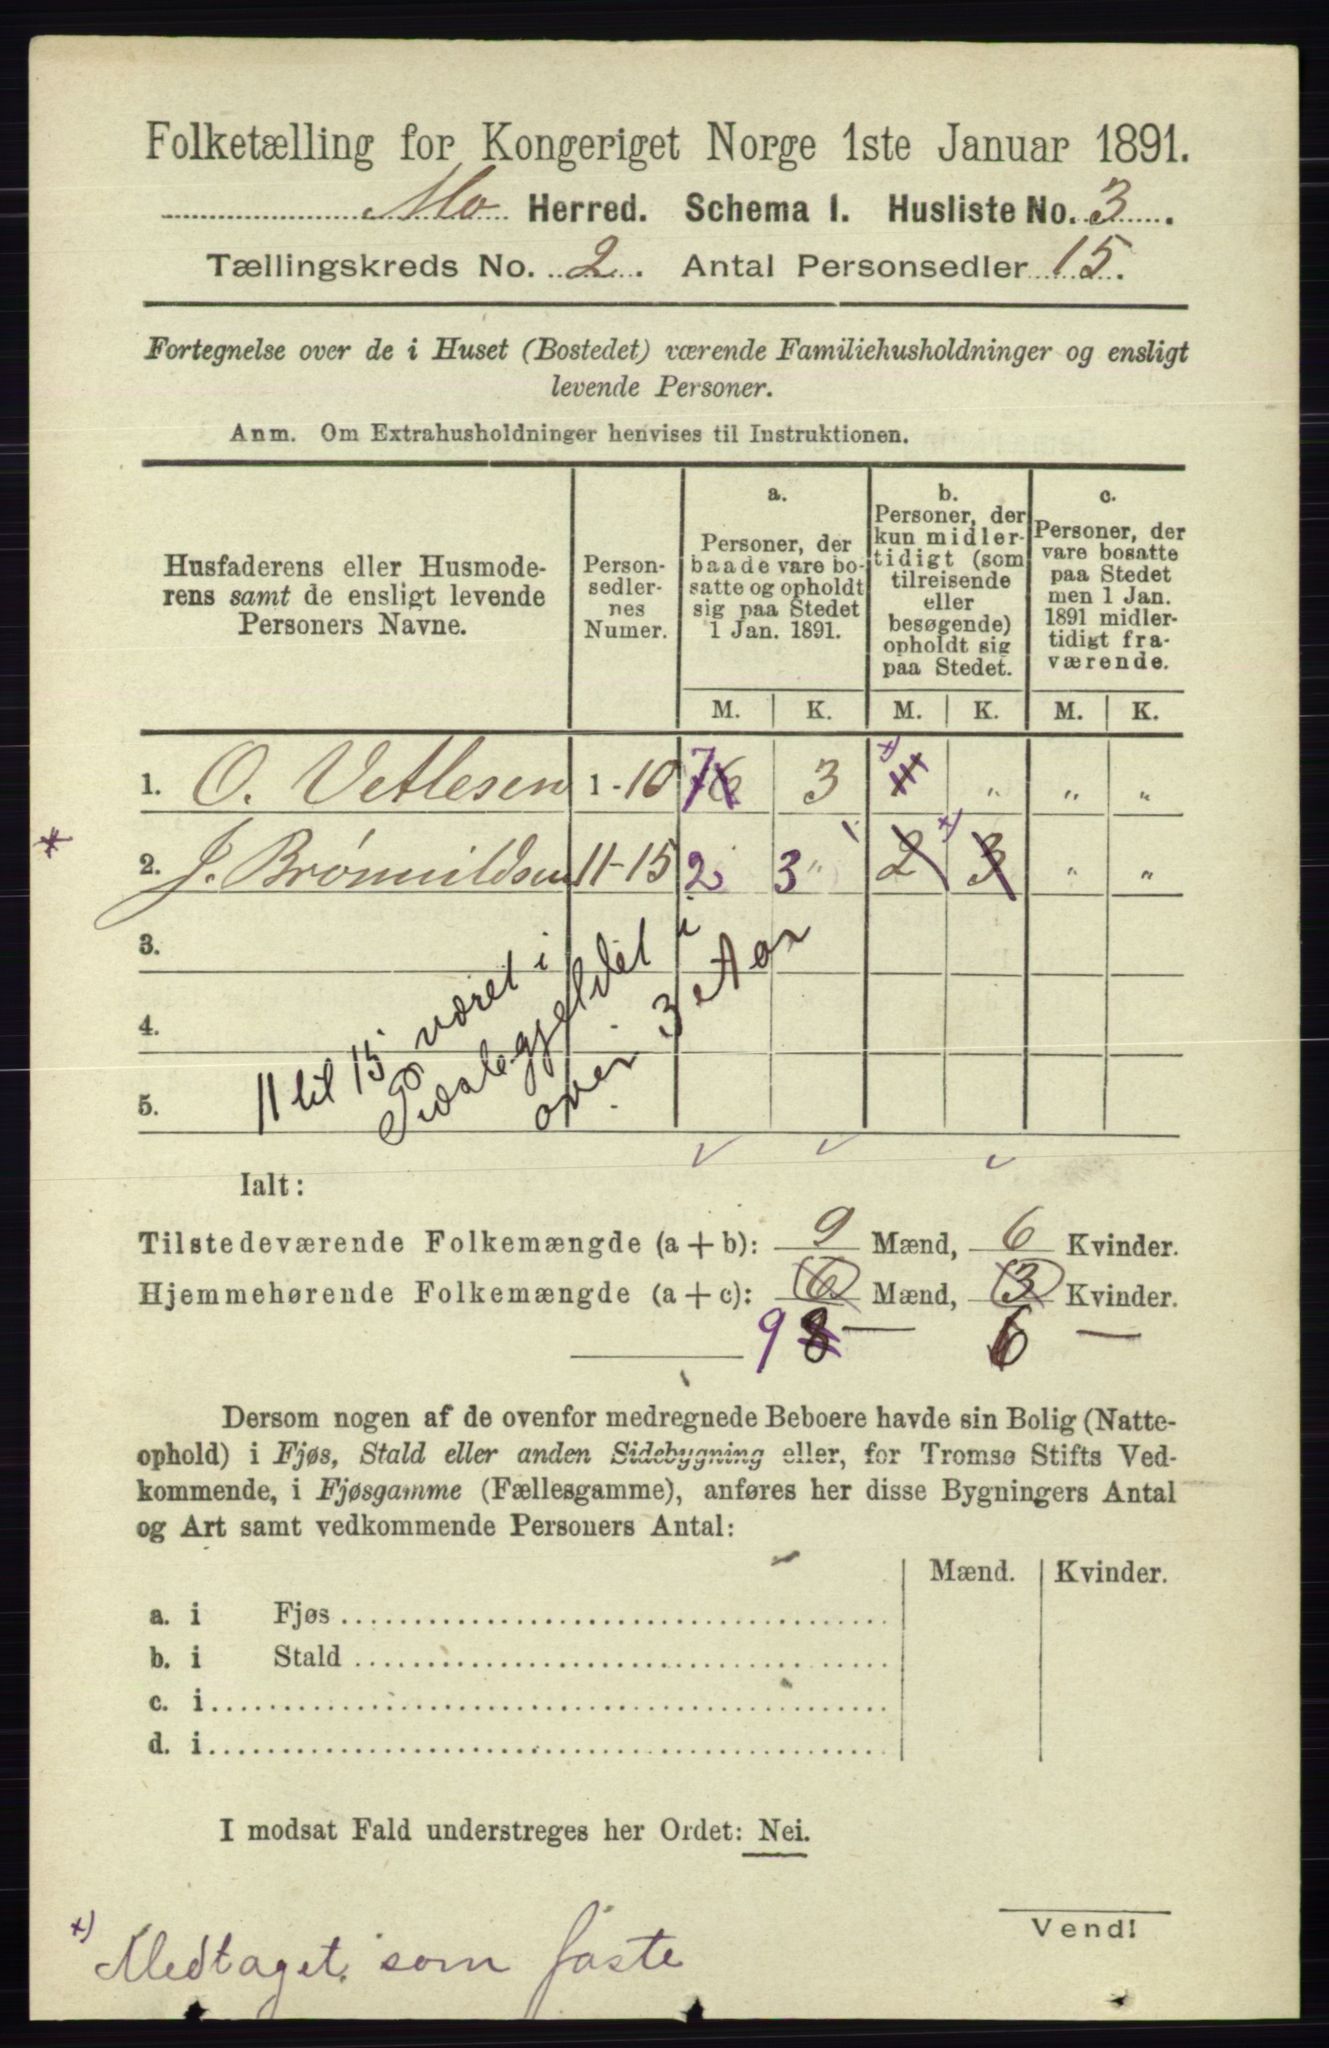 Folketælling for Kongeriget Norge 1ste Januar 1891.
Mo Herred. Schema I. Husliste No. 3.
Tællingskreds No. 2. Antal Personsedler 15.
Fortegnelse over de i Huset (Bostedet) værende Familiehusholdninger og ensligt
levende Personer.
Anm. Om Extrahusholdninger henvises til Instruktionen.
Husfaderens eller Husmode-
rens samt de ensligt levende
Personers Navne.
Person-
sedler-
nes
Numer.
a.
Personer, der
baade vare bo-
satte og opholdt
sig paa Stedet
1 Jan. 1891.
b.
Personer, der
kun midler-
tidigt (som
tilreisende
eller
besøgende)
opholdt sig
paa Stedet.
c.
Personer, der
vare bosatte
paa Stedet
men 1 Jan.
1891 midler-
tidigt fra-
værende.
M. K. M. K. M. K.
1. O. Vetlesen 1-10 7 6 3 x) „ „ „
* 2. J. Brønnildsen 11-15 2 3 „ 2 x) 3 „ „
3.
4.
5.
11 til 15 været i
over 3 Aar
Ialt:
Tilstedeværende Folkemængde (a + b): 9 Mænd, 6 Kvinder.
Hjemmehørende Folkemængde (a + c): 6 Mænd, 3 Kvinder.
9 8 — 6 —
Dersom nogen af de ovenfor medregnede Beboere havde sin Bolig (Natte-
ophold) i Fjøs, Stald eller anden Sidebygning eller, for Tromsø Stifts Ved-
kommende, i Fjøsgamme (Fællesgamme), anføres her disse Bygningers Antal
og Art samt vedkommende Personers Antal:
Mænd. Kvinder.
a. i Fjøs
b. i Stald
c. i
d. i
I modsat Fald understreges her Ordet: Nei.
Vend!
x) Medtaget som faste